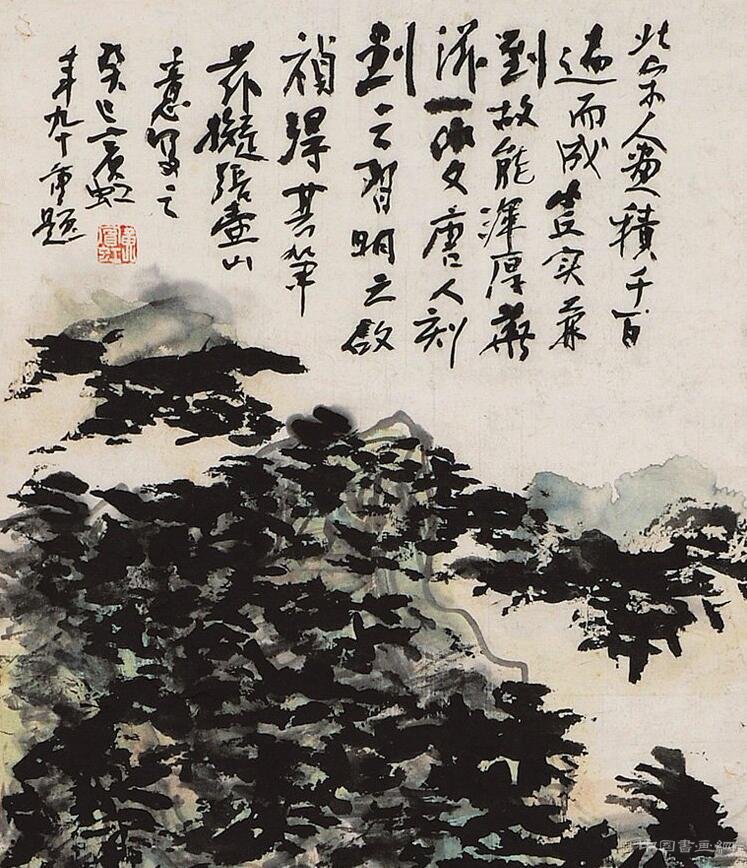 北宋人畫積千百
遍而成虛实兼
到故能渾厚華
滋一變唐人刻
劃之習明之啟
禎得其筆
茲擬張壺山
意寫之
癸巳賓虹
年九十重題
黃賓虹